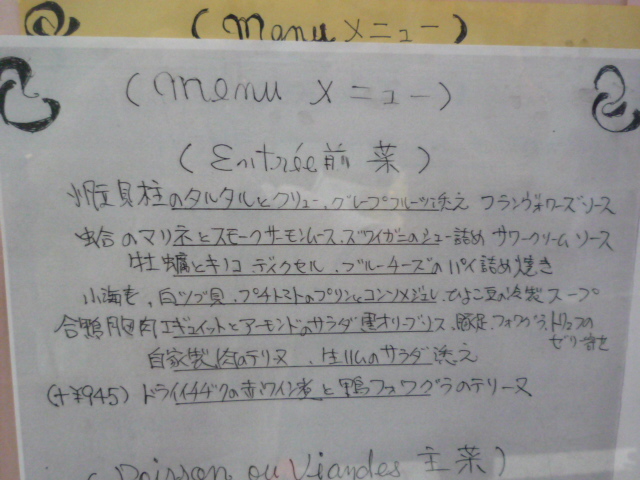 (Menu メニュー)
(menu メニュー)
(Entrée 前菜)
帆立貝柱のタルタルとクリュー、グレープフルーツ添え フランヴォワーズソース
蛤のマリネとスモークサーモンムース、ズワイガニのシュー詰め サワークリームソース
牡蠣とキノコ ディクセル、ブルーチーズのパイ詰め焼き
小海老、白ツブ貝、プチトマトのプリンとコンソメジュレ、ひよこ豆の冷製スープ
合鴨胸肉エギュイットとアーモンドのサラダ 黒オリーブソース、豚足、フォワグラ、トリュフのゼリー寄せ
自家製 肉のテリーヌ、生ハムのサラダ添え
(+¥945) ドライイチヂクの赤ワイン煮と鴨フォワグラのテリーヌ
(Poisson ou Viandes 主菜)